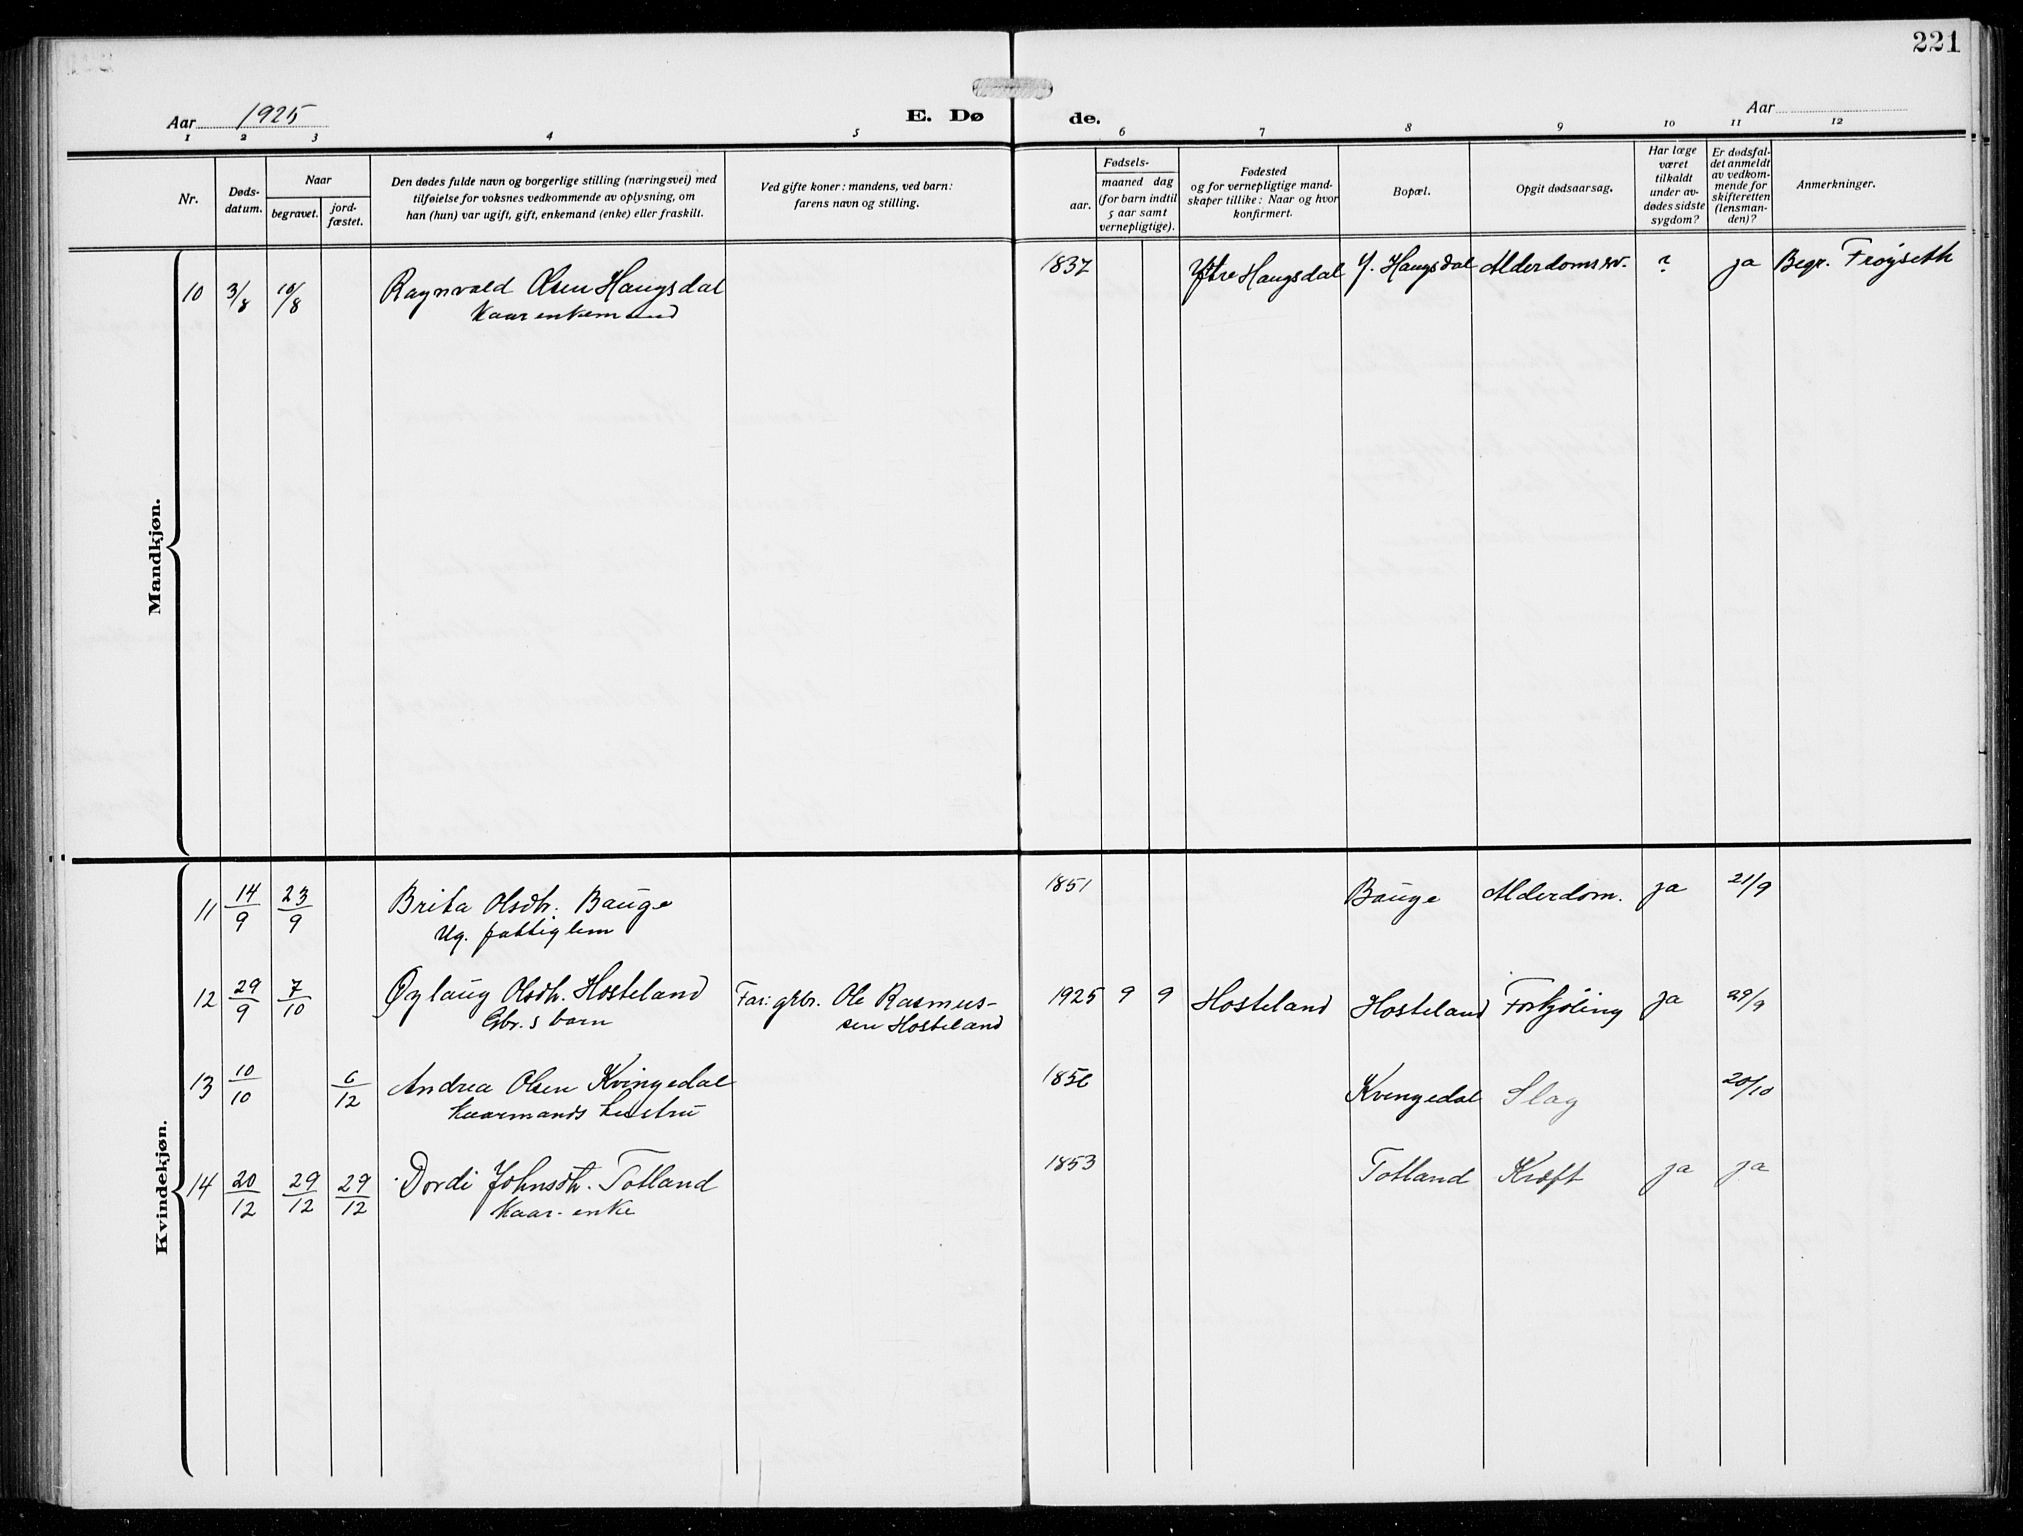 221
Aar 1925
E. Dø de.
Aar
1 2 3 4 5 6 7 8 9 10 11 12
Nr.
Døds-
datum.
Naar
begravet.
jord-
fæstet.
Den dødes fulde navn og borgerlige stilling (næringsvei) med
tilføielse for voksnes vedkommende av oplysning, om
han (hun) var ugift, gift, enkemand (enke) eller fraskilt.
Ved gifte koner: mandens, ved barn:
farens navn og stilling.
Fødsels-
aar.
maaned dag
(for barn indtil
5 aar samt
vernepligtige).
Fødested
og for vernepligtige mand-
skaper tillike: Naar og hvor
konfirmert.
Bopæl.
Opgit dødsaarsag.
Har læge
været
tilkaldt
under av-
dødes sidste
sygdom?
Er dødsfal-
det anmeldt
av vedkom-
mende for
skifteretten
(lensman-
den)?
Anmerkninger.
Mandkjøn.
10 3/8 10/8 Ragnvald Olsen Haugsdal 1837 Ytre Haugsdal Y. Haugsdal Alderdomssv. ? ja Begr. Frøyseth
Kaarenkemand
Kvindekjøn.
11 14/9 23/9 Brita Olsdtr. Bauge 1851 Bauge Alderdom. ja 21/9
Ug. fattiglem
12 29/9 7/10 Øylaug Olsdtr. Hosteland Far: gbr. Ole Rasmus- 1925 9 9 Hosteland Hosteland Forkjöling ja 29/9
Gbr.s barn sen Hosteland
13 10/10 6/12 Andrea Olsen Kvingedal 1856 Kvingedal Slag 20/10
Kaarmands hustru
14 20/12 29/12 29/12 Dordi Johnsdtr. Totland 1853 Totland Kræft ja ja
Kaar-enke